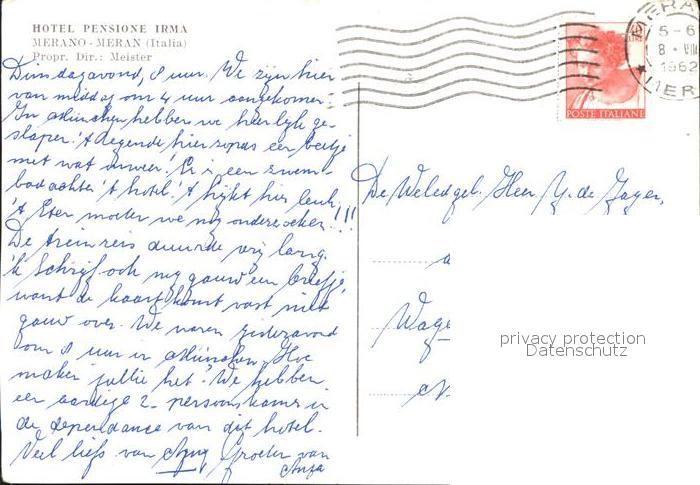 HOTEL PENSIONE IRMA
MERANO - MERAN (Italia)
Propr. Dir.: Meister
Dinsdagavond, 8 uur. We zijn hier
van middag om 4 uur aangekomen.
In München hebben we heerlijk ge-
slapen. 't Regende hier zopas een beetje
met wat onweer. Er is een zwem-
bad achter 't hotel. 't Lijkt hier leuk,
't Eten moeten we nog onderzoeken!!!
De treinreis duurde vrij lang.
'k Schrijf ook nog gauw een briefje,
want de kaart komt vast niet
gauw over. We waren gisteravond
om 8 uur in München. Hoe
maken jullie het? We hebben
een aardige 2-persoonskamer in
de dependance van dit hotel.
Veel liefs van
Groeten van
MERA
5-6
8. VIII
1962
MER
POSTE ITALIANE
De Weledelgeb. Heer Y. de Jager,
a
Wage
N.
privacy protection
Datenschutz